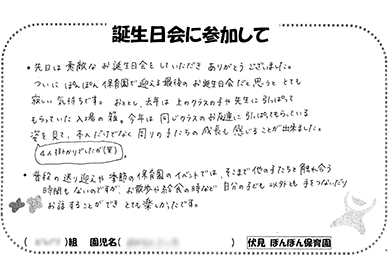 誕生日会に参加して
・先日は素敵なお誕生日会をしていただき ありがとうございました。
ついに ぽんぽん保育園で迎える最後のお誕生日会だと思うと とても
寂しい気持ちです。 おととし、去年は 上のクラスの子や先生に引っぱって
もらっていた入場の箱。今年は 同じクラスのお友達に引っぱってもらっている
姿を見て、本人だけでなく 周りの子たちの成長も感じることが出来ました。
4人掛かりでしたが(笑)
・普段の送り迎えや季節の保育園のイベントでは、そこまで他の子たちと触れ合う
時間もないのですが、お散歩や給食の時など 自分の子ども以外とも手をつないだり
お話することができ とても楽しかったです。
( )組 園児名( ) 伏見 ぽんぽん保育園